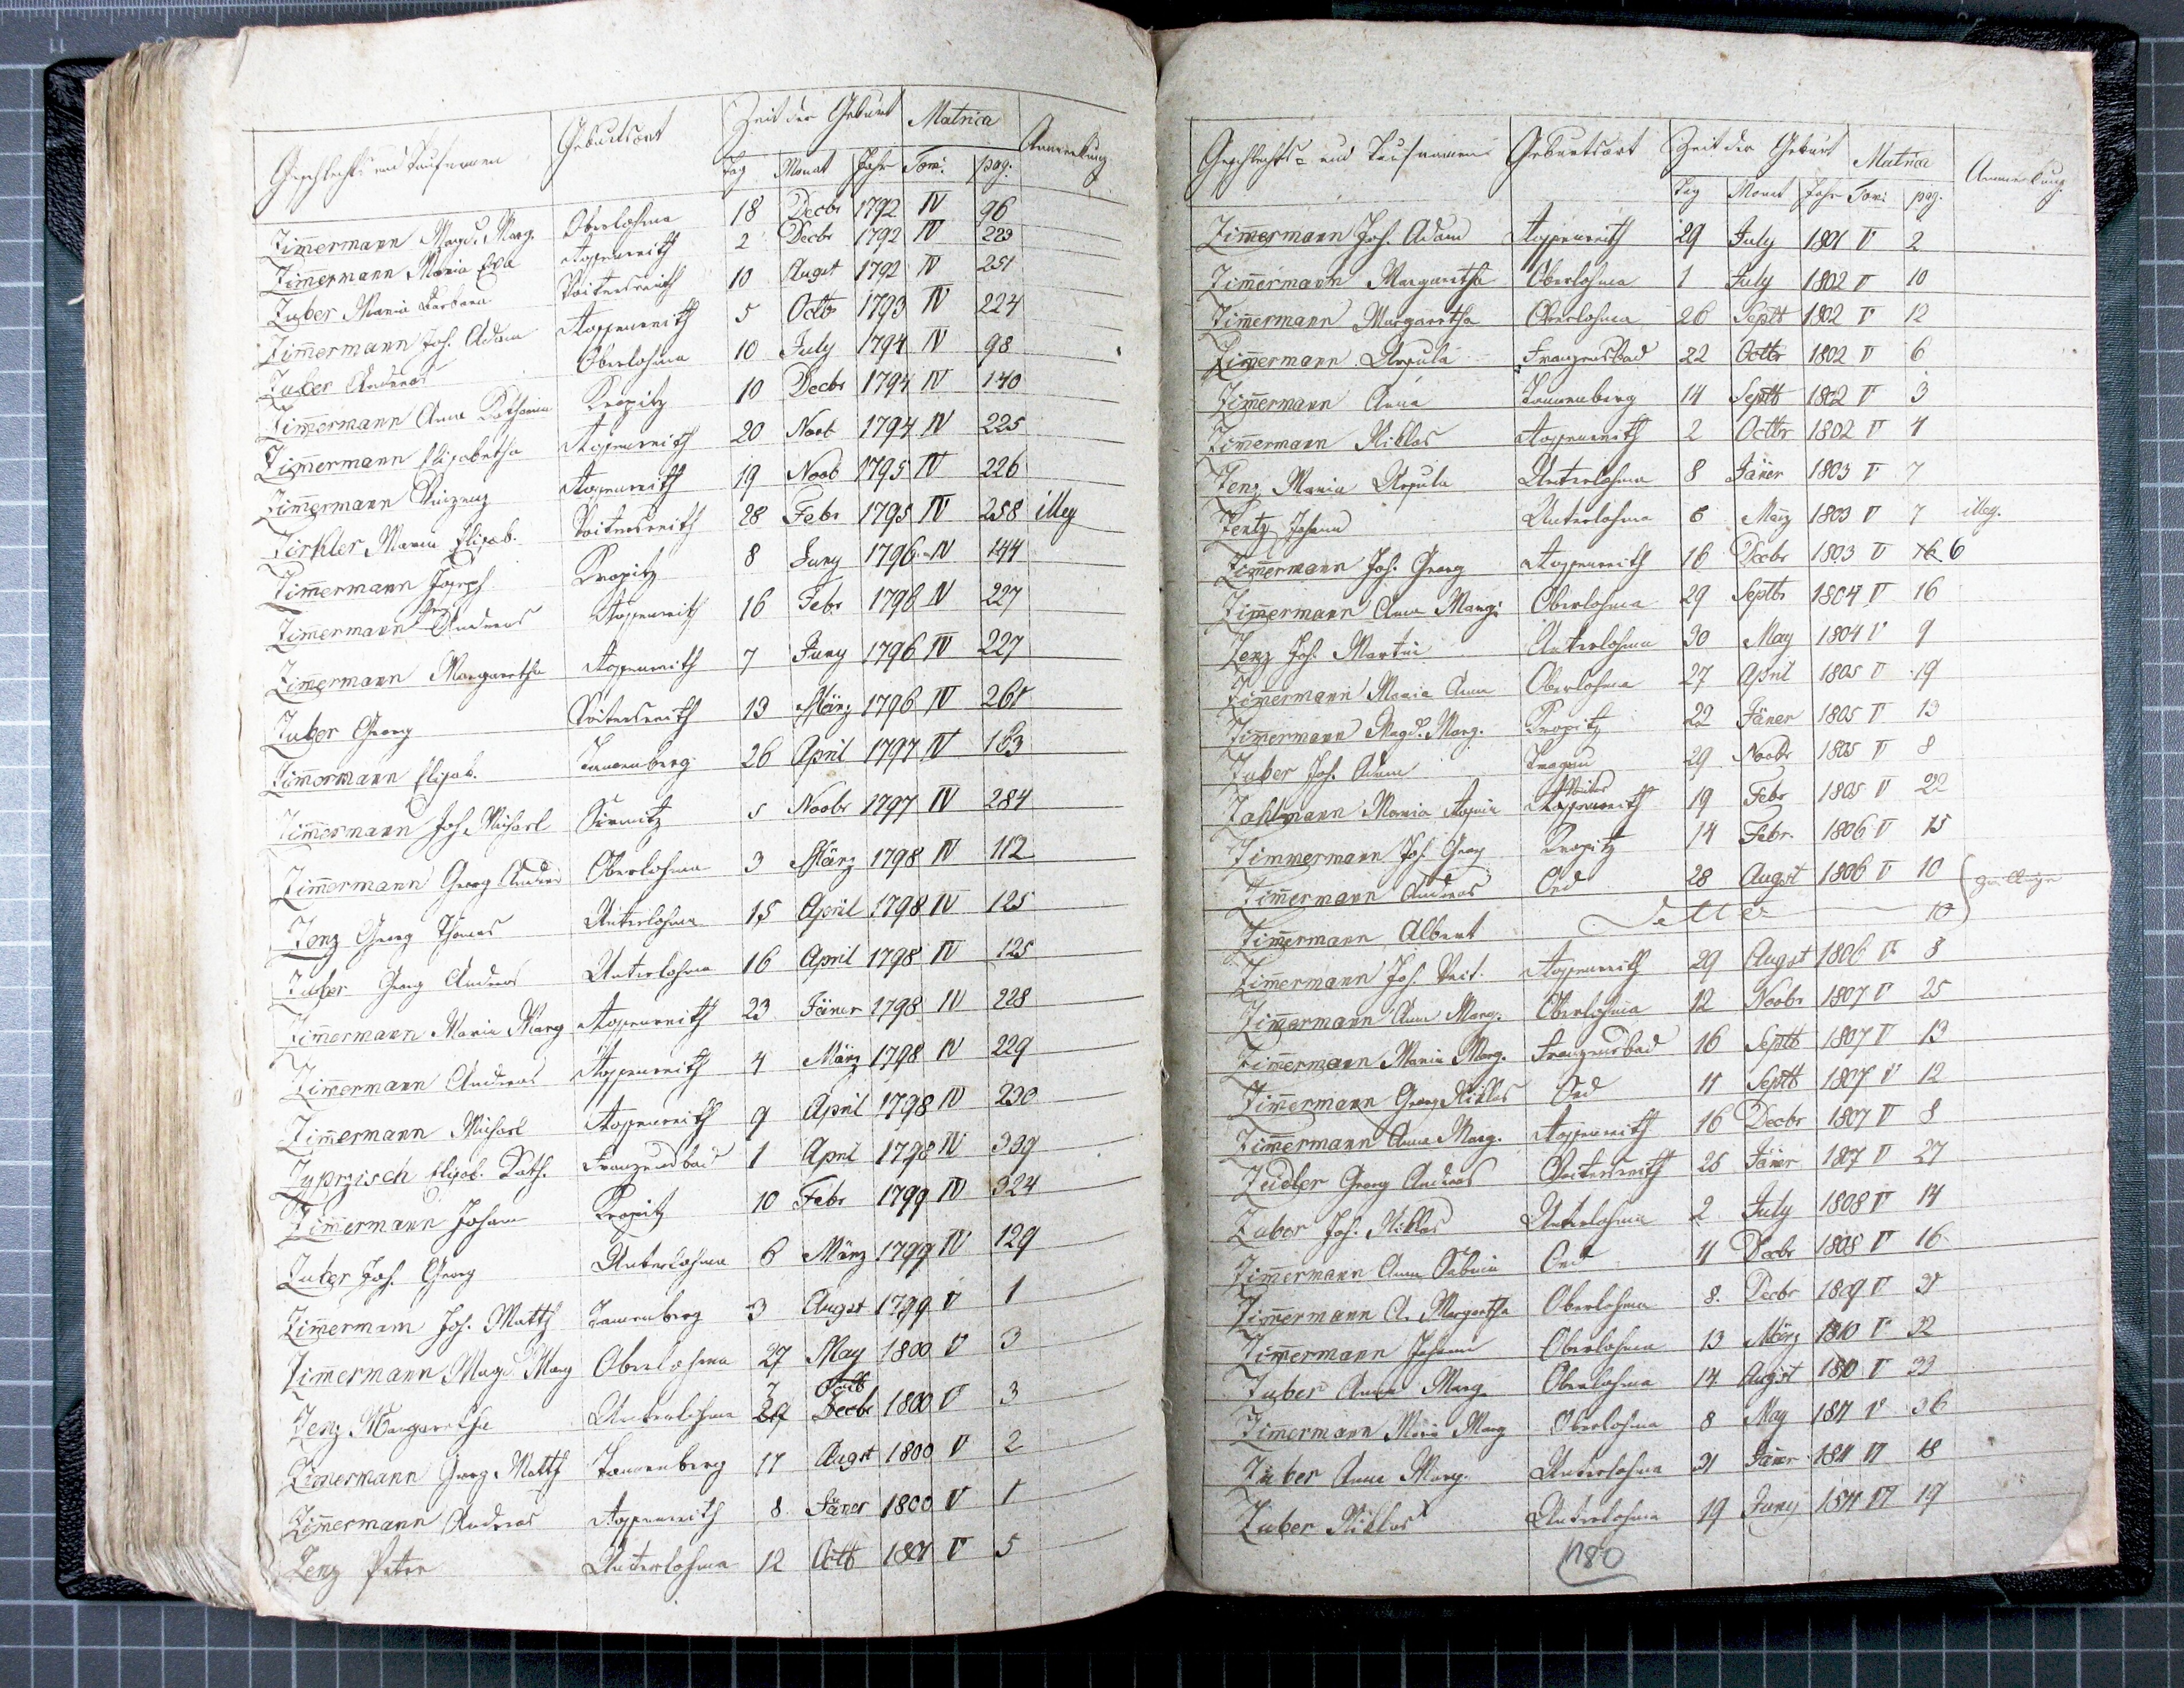 Geschlechts und Taufnamen Geburtsort Zeit der Geburt Matrica Anmerkung
Tag Monat Jahr Tom: pag:
Zimmermann Magd. Marg. Oberlohma 18 Decbr 1792 IV 96
Zimmermann Maria Eva 2 Decbr 1792 IV 223
Zuber Maria Barbara Voitersreith 10 August 1792 IV 251
Zimmermann Joh. Adam 5 Octb 1793 IV 224
Zuber Andreas Oberlohma 10 July 1794 IV 98
Zimmermann Anna Katharina Kropitz 10 Decbr 1794 IV 140
Zimmermann Elisabetha 20 Novb 1794 IV 225
Zimmermann Vinzenz 19 Novb 1795 IV 226
Zirkler Maria Elisab. Voitersreith 28 Febr 1795 IV 258 illeg
Zimmermann Joseph Kropitz 8 Juny 1796 IV 144
Zimmermann Andreas 16 Febr 1796 IV 227
Zimmermann Margaretha 7 Juny 1796 IV 227
Zuber Georg Voitersreith 13 März 1796 IV 261
Zimmermann Elisab. Tannenberg 26 April 1797 IV 183
Zimmermann Joh. Michael Sirmitz 5 Novbr 1797 IV 284
Zimmermann Georg Andreas Oberlohma 3 März 1798 IV 112
Zenz Georg Thomas Unterlohma 15 April 1798 IV 125
Zuber Georg Andreas Unterlohma 16 April 1798 IV 125
Zimmermann Maria Marg 23 Jäner 1798 IV 228
Zimmermann Andreas 4 März 1798 IV 229
Zimmermann Michael 9 April 1798 IV 230
Zyprzisch Elisab. Kath. Franzensbad 1 April 1798 IV 339
Zimmermann Johann Kropitz 10 Febr 1799 IV 324
Zuber Joh. Georg Unterlohma 6 März 1799 IV 129
Zimmermann Joh. Matth Tannenberg 3 Augst 1799 V 1
Zimmermann Magd Marg Oberlohma 27 May 1800 V 3
Zenz Margaretha Unterlohma Decbr 1800 V 3
Zimmermann Georg Matth Tannenberg 17 Augst 1800 V 2
Zimmermann Andreas 8 Jäner 1800 V 1
Zenz Peter Unterlohma 12 Octb 1801 V 5
Geschlechts- und Taufnamen Geburtsort Zeit der Geburt Matrica Anmerkung
Tag Monat Jahr Tom: pag.
Zimmermann Joh. Adam 29 July 1801 V 2
Zimmermann Margaretha Oberlohma 1 July 1802 V 10
Zimmermann Margaretha Oberlohma 26 Septb 1802 V 12
Zimmermann Ursula Franzensbad 22 Octbr 1802 V 6
Zimmermann Anna Tannenberg 14 Septb 1802 V 3
Zimmermann Niklas 2 Octbr 1802 V 4
Zenz Maria Ursula Unterlohma 8 Jäner 1803 V 7
Zentz Johann Unterlohma 6 März 1803 V 7 illeg.
Zimmermann Joh. Georg 16 Decbr 1803 V 6
Zimmermann Anna Marg: Oberlohma 29 Septbr 1804 V 16
Zenz Joh. Martin Unterlohma 30 May 1804 V 9
Zimmermann Maria Anna Oberlohma 27 April 1805 V 19
Zimmermann Magd. Marg. Kropitz 22 Jäner 1805 V 13
Zuber Joh. Adam 29 Novbr 1805 V 8
Zahlmann Maria 19 Febr 1805 V 22
Zimmermann Joh. Georg Kropitz 14 Febr. 1806 V 15
Zimmermann Andreas Oed 28 August 1806 V 10
Zimmermann Albert Detto 10
Zimmermann Joh. Veit. 29 August 1806 V 8
Zimmermann Anna Marg. Oberlohma 12 Novbr 1807 V 25
Zimmermann Maria Marg. Franzensbad 16 Septb 1807 V 13
Zimmermann Georg Niklas Oed 11 Septb 1807 V 12
Zimmermann Anna Marg. 16 Decbr 1807 V 8
Zudler Georg Andreas Voitersreith 26 Jäner 1807 V 27
Zuber Joh. Niklas Unterlohma 2 July 1808 V 14
Zimmermann Anna Sabina Oed 11 Decbr 1808 V 16
Zimmermann A. Margaretha Oberlohma 8. Decbr 1809 V 31
Zimmermann Johann Oberlohma 13 März 1810 V 32
Zuber Anna Marg. Oberlohma 14 August 1810 V 33
Zimmermann Maria Marg Oberlohma 8 May 1811 V 36
Zuber Anna Marg. Unterlohma 31 Jäner 1811 VI 18
Zuber Niklas Unterlohma 19 Juny 1811 VI 19
180